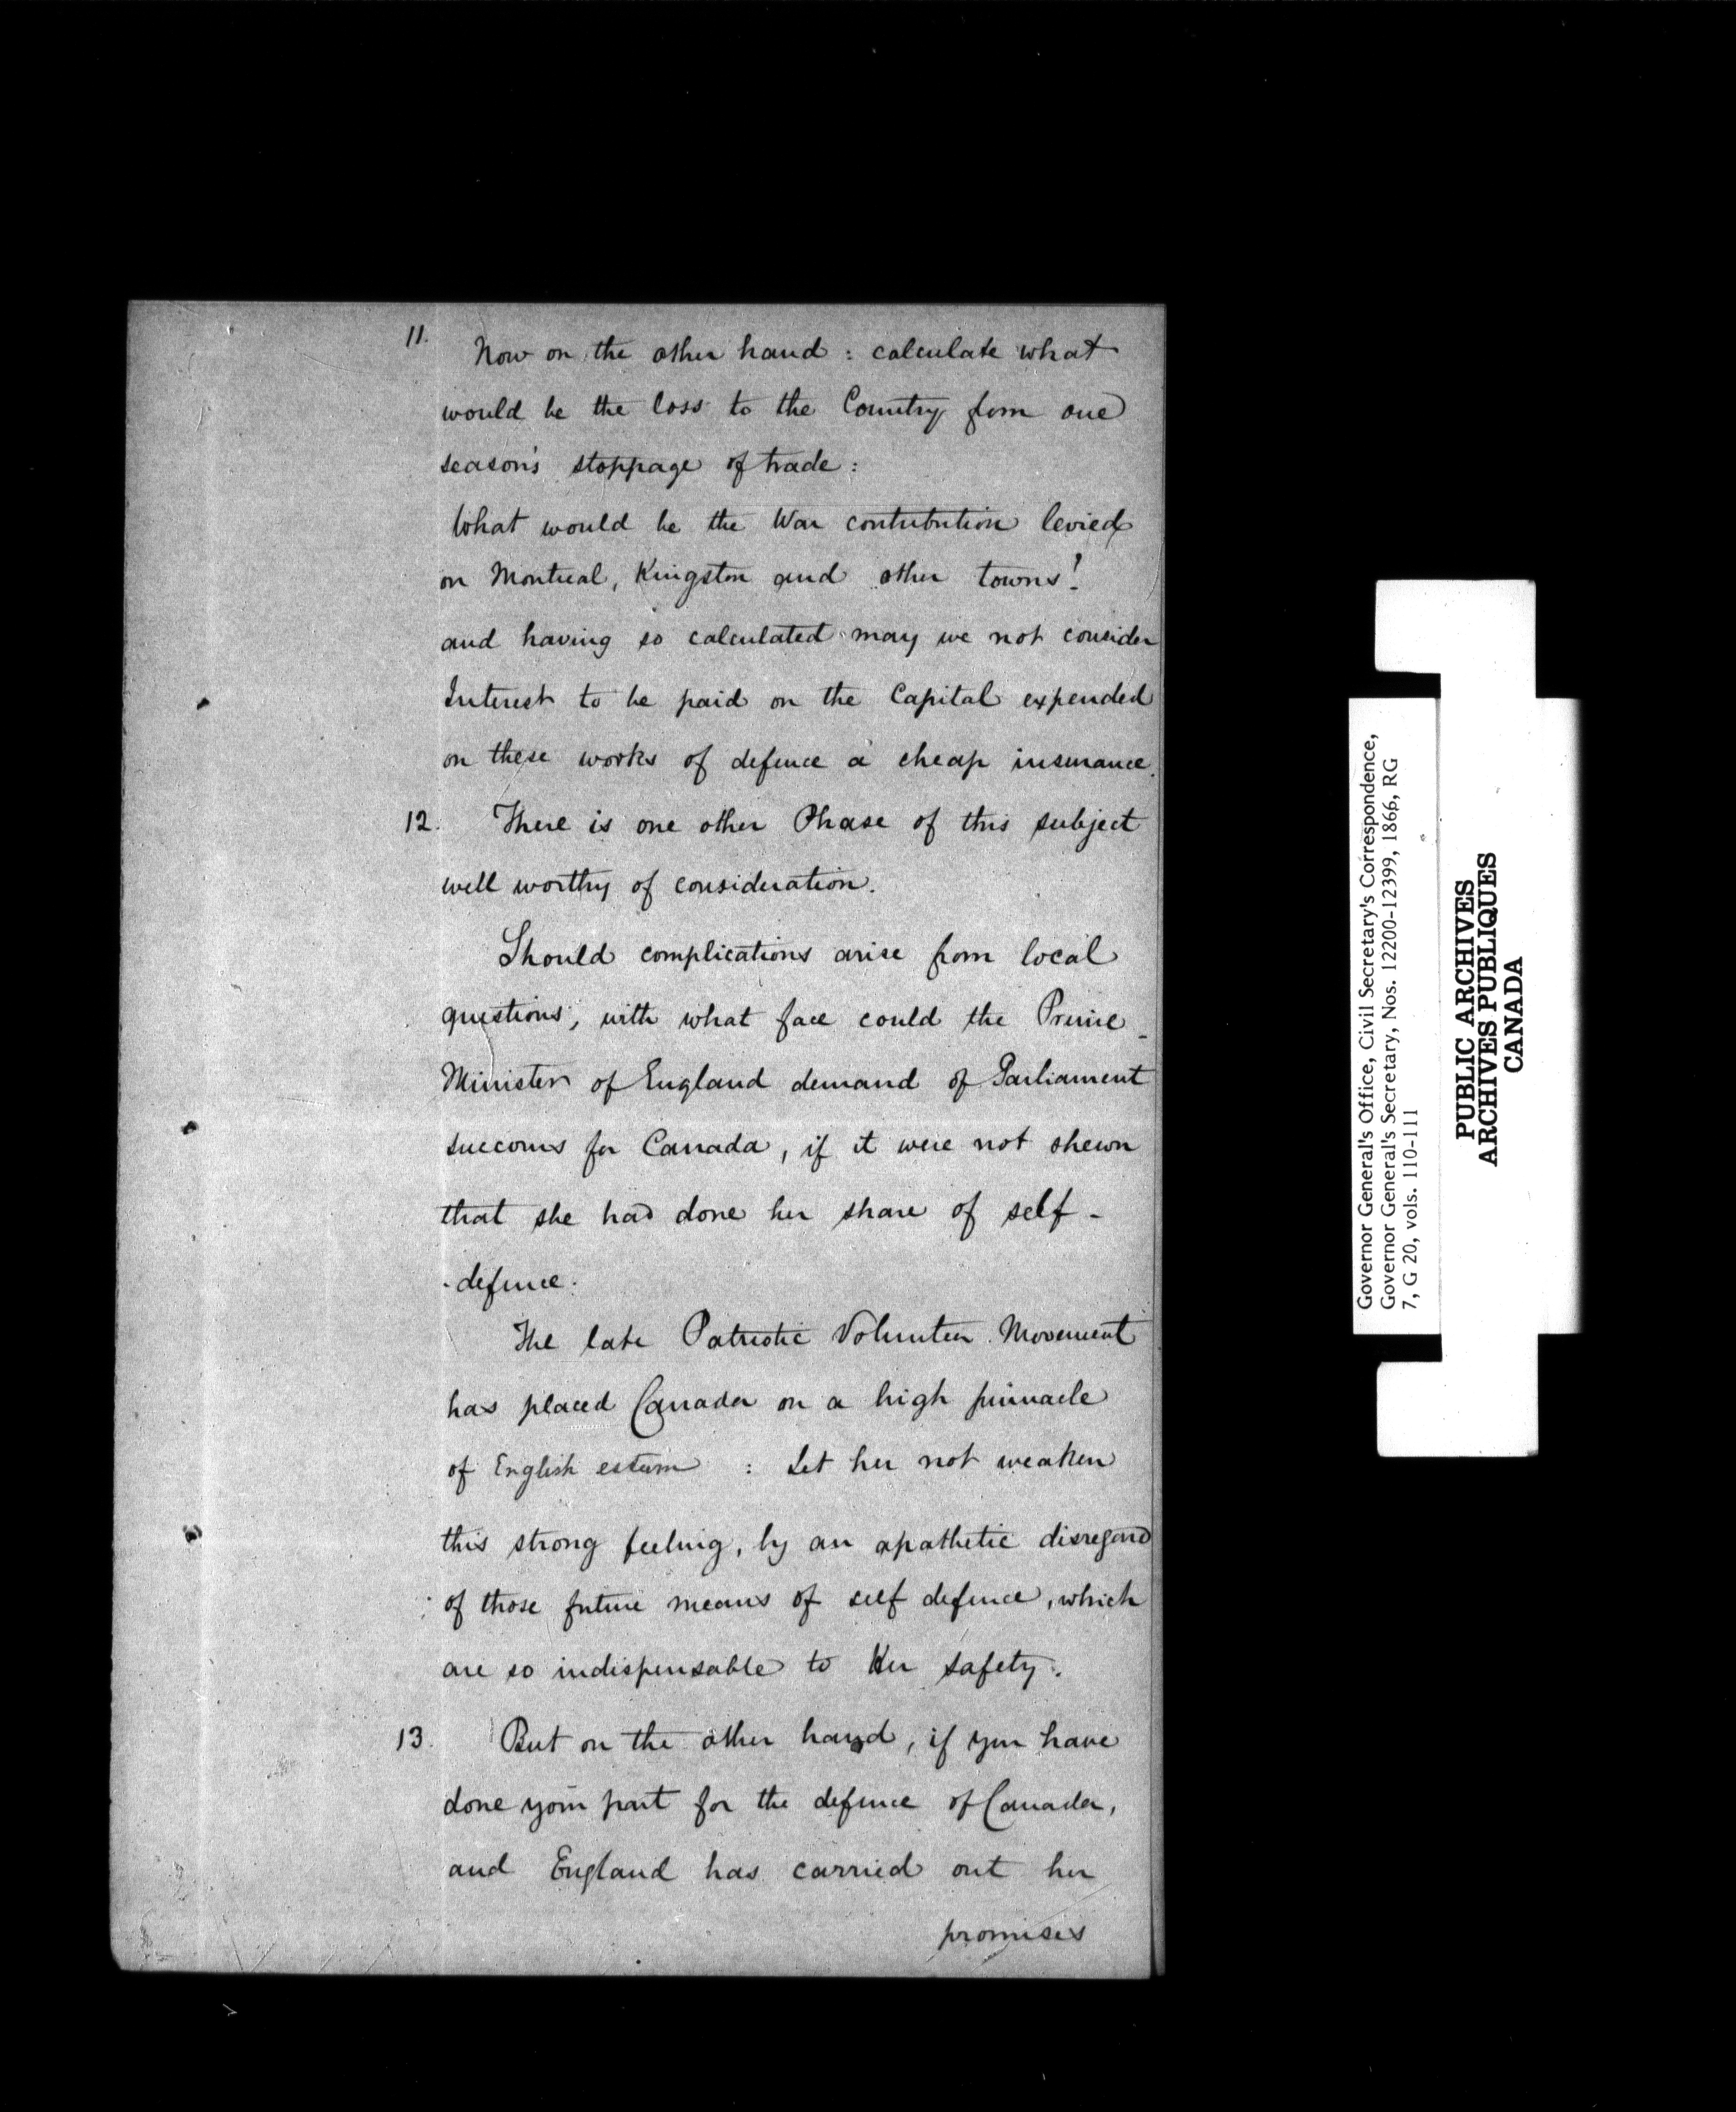 11. Now on the other hand : calculate what
would be the loss to the Country from one
season's stoppage of trade :
What would be the War contribution levied
on Montreal, Kingston and other towns!
and having so calculated may we not consider
Interest to be paid on the Capital expended
on these works of defence a cheap insurance.
12. There is one other Phase of this subject
well worthy of consideration.
Should complications arise from local
questions, with what face could the Prime
Minister of England demand of Parliament
succours for Canada, if it were not shewn
that she had done her share of self-
-defence.
The late Patriotic Volunteer Movement
has placed Canada on a high pinnacle
of English esteem : Let her not weaken
this strong feeling, by an apathetic disregard
of those future means of self defence, which
are so indispensable to Her safety.
13. But on the other hand, if you have
done your part for the defence of Canada,
and England has carried out her
promises
Governor General's Office, Civil Secretary's Correspondence,
Governor General's Secretary, Nos. 12200-12399, 1866, RG
7, G 20, vols. 110-111
PUBLIC ARCHIVES
ARCHIVES PUBLIQUES
CANADA